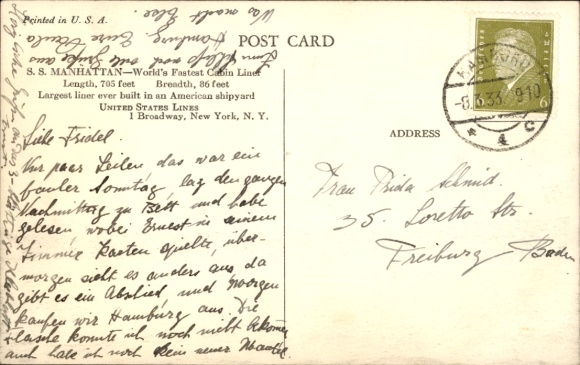 Printed in U. S. A.
POST CARD
S. S. MANHATTAN—World's Fastest Cabin Liner
Length, 705 feet Breadth, 86 feet
Largest liner ever built in an American shipyard
UNITED STATES LINES
1 Broadway, New York, N. Y.
ADDRESS
Liebe Friedel.
Nur paar Zeilen das war ein
fauler Sonntag, lag den ganzen
Nachmittag zu Bett und habe
gelesen wobei Ernest in seinem
Zimmer Karten spielte, über-
morgen sieht es anders aus, da
gibt es ein Abschied und morgen
kaufen wir Hamburg aus. Die
konnte ich noch nicht
auch habe ich noch kein neuer Mantel
Was macht
Hamburg Eure
und gute Grüße aus
Frau Frida Schmid.
35. Loretto Str.
Freiburg Baden
HAMBURG
-8.3.33. 9-10
* 4 C
6